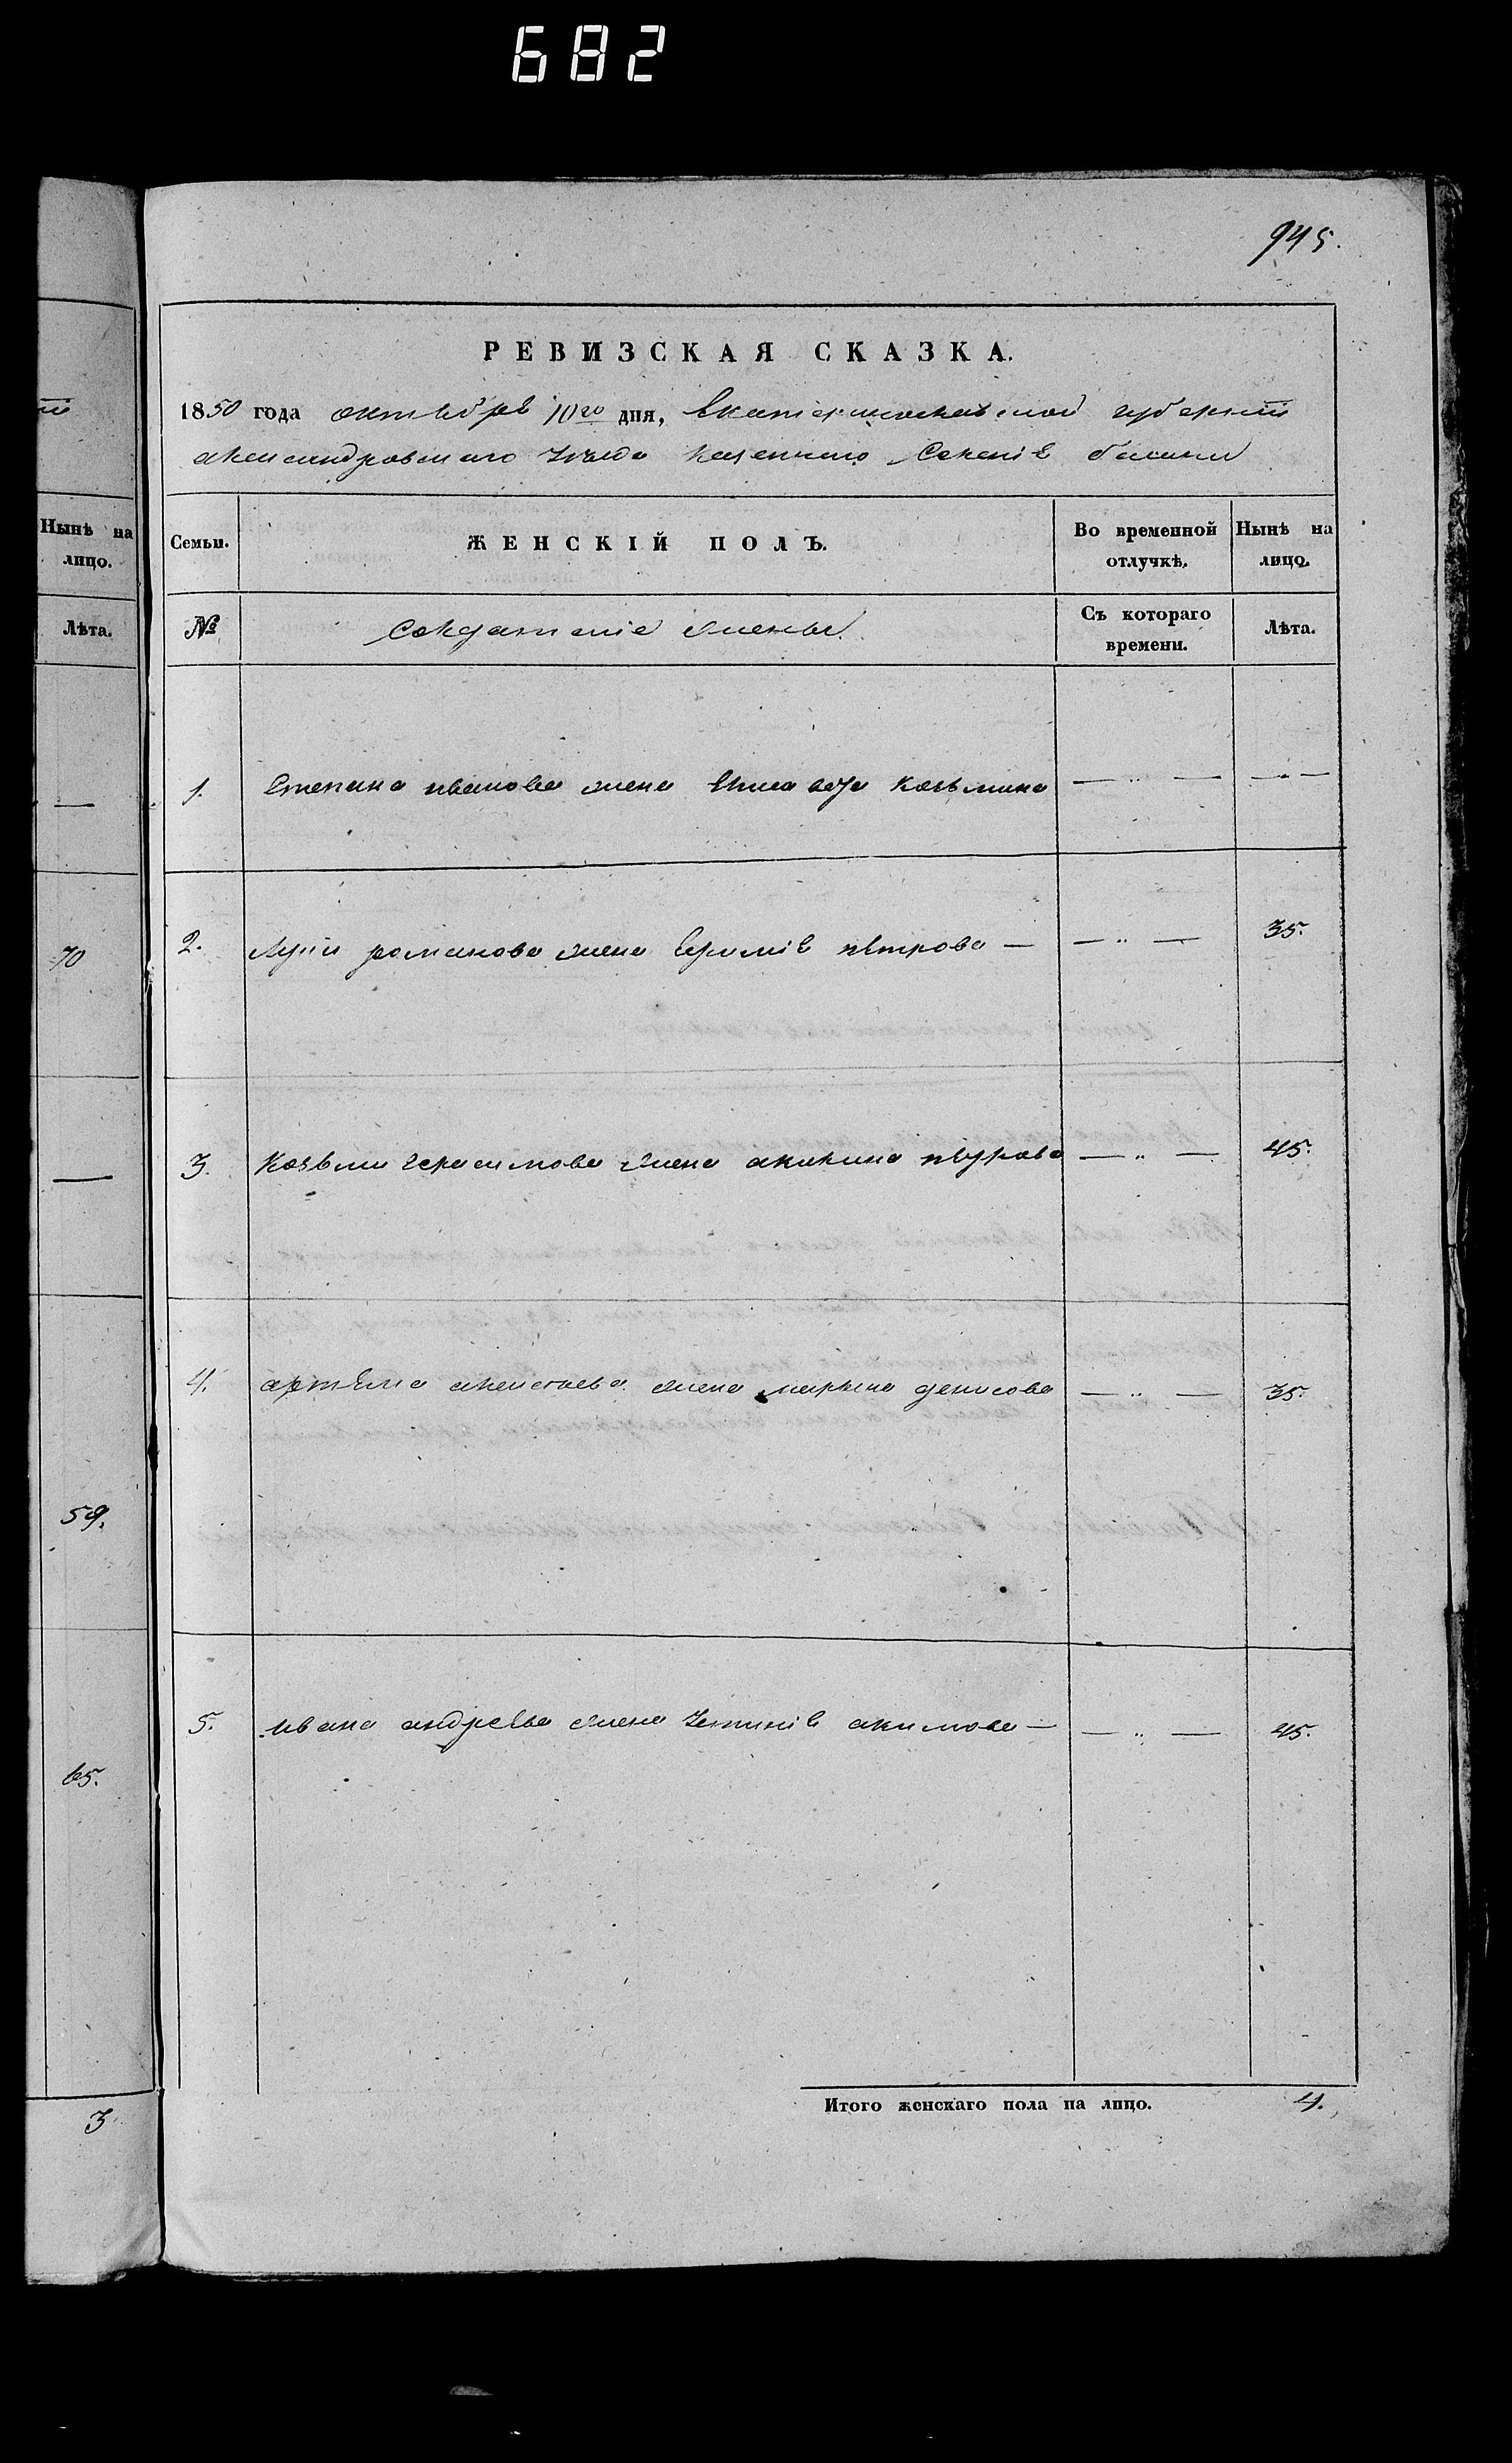 682
945.
РЕВИЗСКАЯ СКАЗКА.
1850 года октября 10го дня, Екатеринославской губернии
александровскаго уезда казеннаго Селения
Нынѣ на лицо.
Семьи.
ЖЕНСКІЙ ПОЛЪ.
Во временной отлучкѣ.
Нынѣ на лицо.
Лѣта.
№
Солдатские жены
Съ котораго времени.
Лѣта.
1. Степана иванова жена Елисавета козьмина — " — — " —
70
2. романова жена петрова — — " — 35.
3. Козьмы герасимова жена акилина петрова — " — 45.
4. артема алексеева жена марына денисова — " — 35.
59.
5. ивана андреева жена устиния акимова — — " — 45.
65.
Итого женскаго пола на лицо. 4.
3